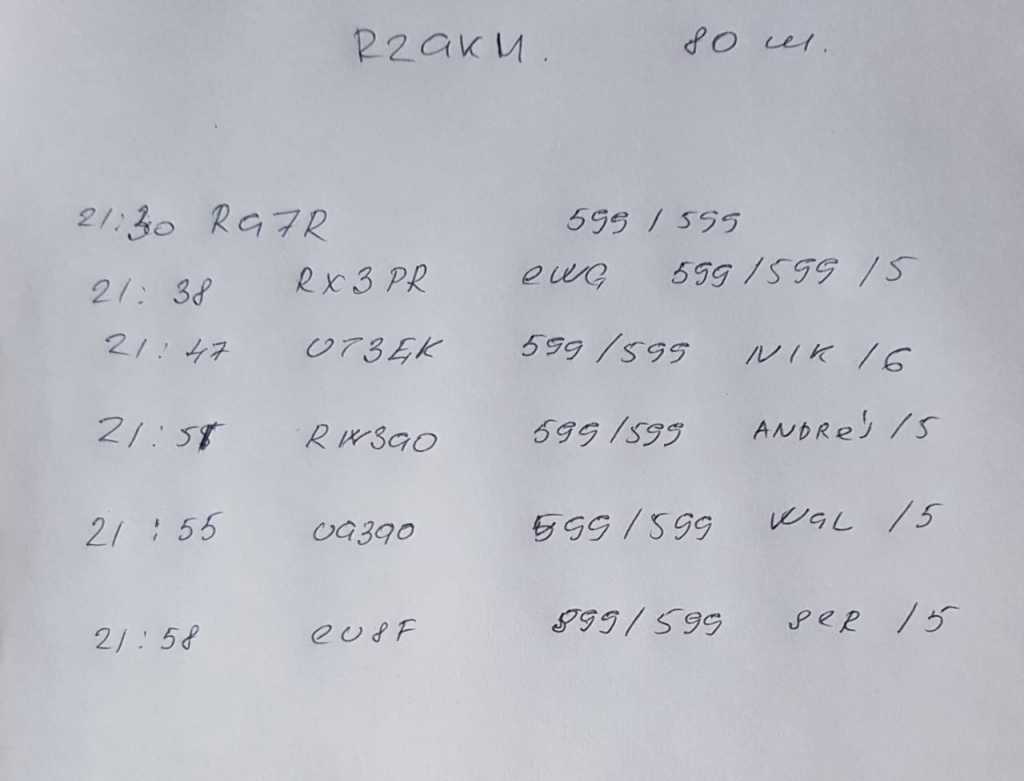 R2AKM. 80 м.
21:30 RA7R 599 / 599
21:38 RX3PR EWG 599 / 599 / 5
21:47 UT3EK 599 / 599 NIK / 6
21:51 RW3QO 599 / 599 ANDREJ / 5
21:55 UA3QO 599 / 599 WAL / 5
21:58 EU8F 599 / 599 SER / 5